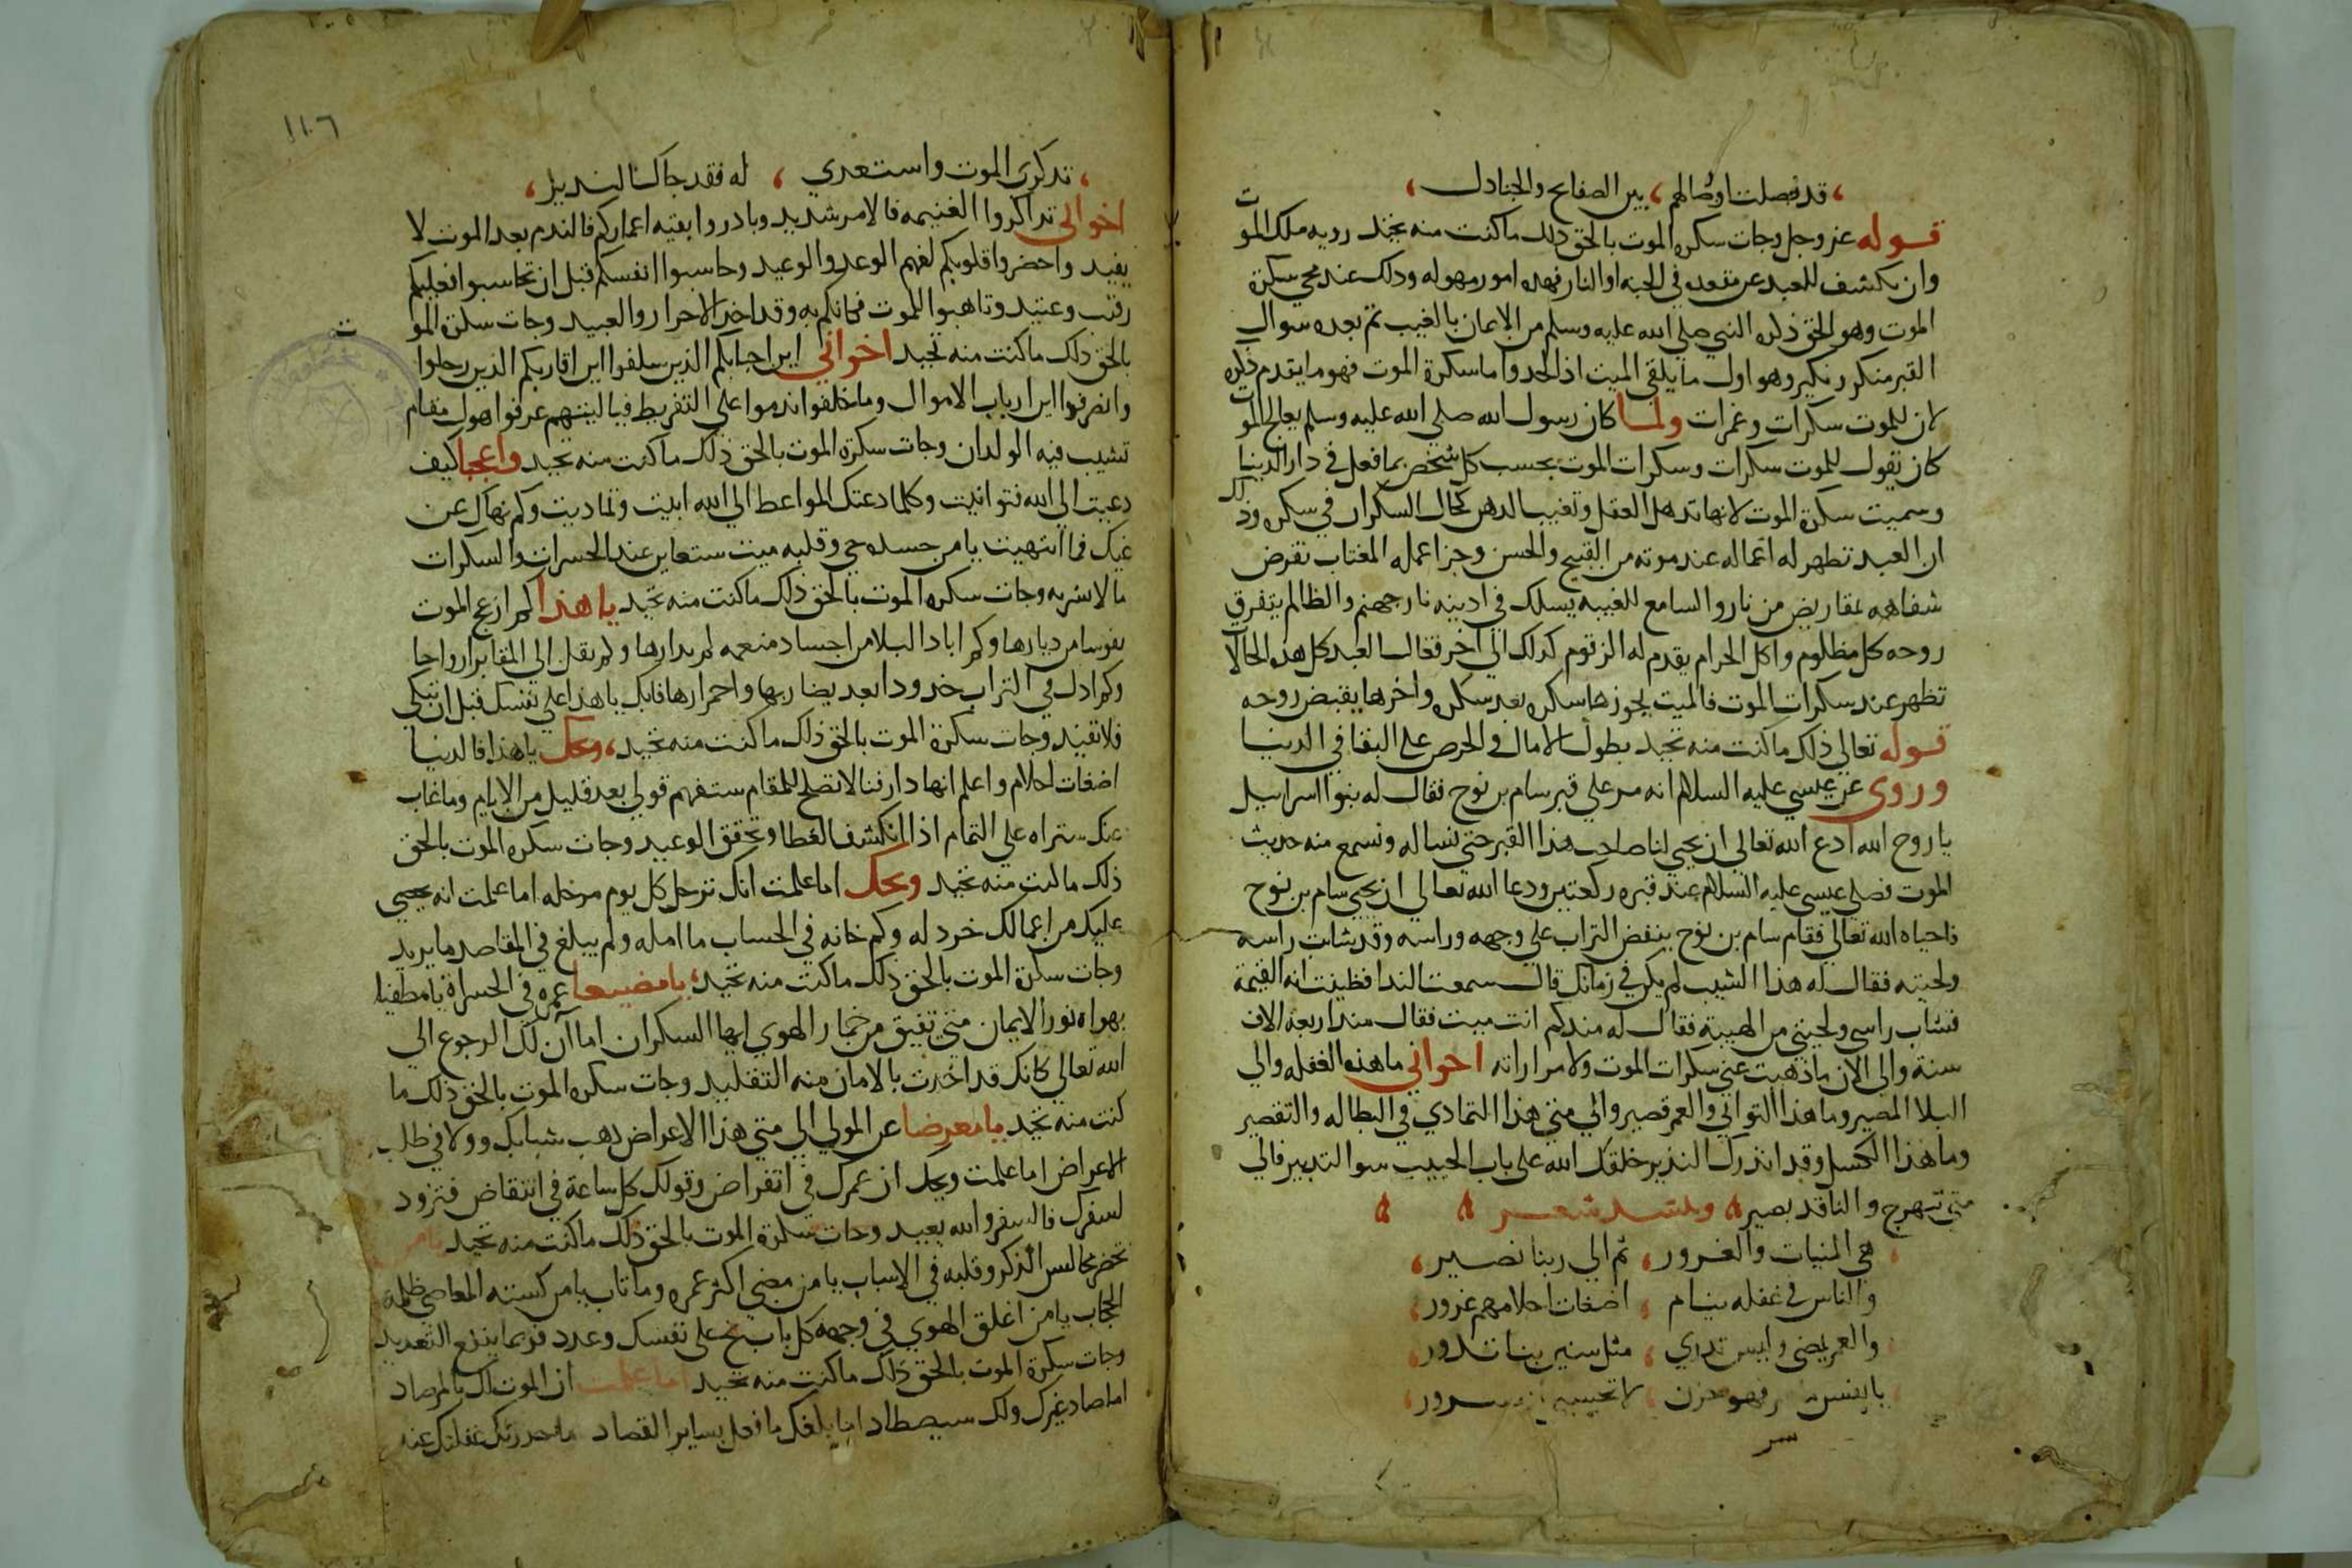 ، قد فصلت اوصالهم ، بين الصفايح والجنادل ،
قوله عز وجل وجات سكره الموت بالحق ذلك ما كنت منه تحيد رويه ملك الموت
وان يكشف للعبد عن مقعده في الجنه او النار فهده امور مهوله ودلك عند مجي سكرة
الموت وهو الحق ذكره النبي صلي الله عليه وسلم من الايمان بالغيب ثم بعده سوال
القبر منكر ونكير وهو اول ما يلقي الميت اذا لحد واما سكرة الموت فهو ما يتقدم ذكره
لان للموت سكرات وغمرات ولما كان رسول الله صلي الله عليه وسلم يعالج الموت
كان يقول للموت سكرات وسكرات الموت بحسب كل شخص بما فعل في دار الدنيا
وسميت سكرة الموت لانها تدهل العقل وتغيب الدهن كحال السكران في سكره وذلك
ان العبد تظهر له اعماله عند موته من القبيح والحسن وجزا عمله المغتاب تقرض
شفاهه بمقاريض من نار والسامع للغيبه يسلك في ادنيه نار جهنم والظالم يتفرق
روحه كل مظلوم واكل الحرام يقدم له الزقوم كدلك الي اخر فعال العبد كل هذه الحالات
تظهر عند سكرات الموت فالميت يجوزها سكره بعد سكره واخرها يقبض روحه
قوله تعالي ذلك ما كنت منه تحيد بطول الامال والحرص علي البقا في الدنيا
وروي عن عيسي عليه السلام انه مر علي قبر سام بن نوح فقال له بنوا اسراييل
يا روح الله ادع الله تعالي ان يحيي لنا صاحب هذا القبر حتي نساله ونسمع منه حديث
الموت فصلي عيسي عليه السلام عند قبره ركعتين ودعا الله تعالي ان يحيي سام بن نوح
فاحياه الله تعالي فقام سام بن نوح ينفض التراب علي وجهه وراسه وقد شابت راسه
ولحيته فقال له هذا الشيب لم يكن في زمانك قال سمعت الندا فظننت انه القيمة
فشاب راسي ولحيتي من الهيبة فقال له مندكم انت ميت فقال مند اربعه الاف
سنة والي الان ما ذهبت عني سكرات الموت ولا مراراته اخواني ما هذه الغفله والي
البلا المصير وما هذا التواني والعمر قصير والي متي هذا التمادي في البطاله والتقصير
وما هذا الكسل وقد اندرك النذير خلقك الله علي باب الحبيب سوا التدبير فالي
متي تبهرج والناقد بصير وينشد شعر
هي المنيات والغرور ، ثم الي ربنا نصير ،
والناس في غفله نيام ، اضغات احلامهم غرور ،
والعمر يمضي وليس تدري ، مثل سنين بنا تدور ،
يا نفس فهو حزن ، لا تحسبيه سرور ،
١١٠٦
، تدكري الموت واستعدي ، له فقد جاك النذير ،
اخواني تداكروا الغنيمه فالامر شديد وبادروا بقيه اعماركم فالندم بعد الموت لا
يفيد واحضروا قلوبكم لفهم الوعد والوعيد وحاسبوا انفسكم قبل ان تحاسبوا فعليكم
رقيب وعتيد وتاهبوا للموت فكانكم به وقد اخد الاحرار والعبيد وجات سكرة الموت
بالحق ذلك ما كنت منه تحيد اخواني اين احبابكم الذين سلفوا اين اقاربكم الذين رحلوا
وانصرفوا اين ارباب الاموال وما خلفوا ندموا علي التفريط فياليتهم عرفوا هول مقام
تشيب فيه الولدان وجات سكرة الموت بالحق ذلك ما كنت منه تحيد واعجبا كيف
دعيت الي الله فتوانيت وكلما دعتك المواعظ الي الله ابيت وتماديت وكم نهاك عن
غيك فما انتهيت يا من جسده حي وقلبه ميت ستعاين عند الحسرات والسكرات
ما لا تشريه وجات سكره الموت بالحق ذلك ما كنت منه تحيد يا هذا كم ازعج الموت
نفوسا من ديارها وكم اباد البلا من اجساد منعمه لم يدارها وكم نقل الي المقابر ارواحا
وكم ادل في التراب خدودا بعد بضاربها واحمرارها فابك يا هذا علي نفسك قبل ان تبكي
فلا تفيد وجات سكرة الموت بالحق ذلك ما كنت منه تحيد ، ويحك يا هذا فالدنيا
اضغات احلام واعلم انها دار فنا لا تصلح للمقام ستفهم قولي بعد قليل من الايام وما غاب
عنك ستراه علي التمام اذا انكشف الغطا وتحقق الوعيد وجات سكره الموت بالحق
ذلك ما كنت منه تحيد ويحك اما علمت انك ترحل كل يوم مرحله اما علمت انه يحصي
عليك من اعمالك خردله وكم خانه في الحساب ما امله ولم يبلغ في المقاصد ما يريد
وجات سكرة الموت بالحق ذلك ما كنت منه تحيد ، يا مضيعا عمره في الخسارة يا مطفيا
بهواه نور الايمان متي تفيق من خمار الهوي ايها السكران اما آن لك الرجوع الي
الله تعالي كانك قد اخدت بالامان منه التقليد وجات سكره الموت بالحق ذلك ما
كنت منه تحيد يا معرضا عن المولي الي متي هذا الاعراض ذهب شبابك وولا في طلب
الاعراض اما علمت ويحك ان عمرك في انقراض وقولك كل ساعة في انتقاض فتزود
لسفرك فالسفر والله بعيد وجات سكرة الموت بالحق ذلك ما كنت منه تحيد يا من
تحضر مجالس الذكر وقلبه في الاسباب يا من مضي اكثر عمره وما تاب يا من كسته المعاصي ظلمة
الحجاب يا من اغلق الهوي في وجهه كل باب نح علي نفسك وعدد فربما ينفع التعديد
وجات سكرة الموت بالحق ذلك ما كنت منه تحيد اما علمت ان الموت لك بالمرصاد
اما صاد غيرك ولك سيصطاد اما بلغك ما فعل بساير القصاد ما حدرتك غفلتك عنه